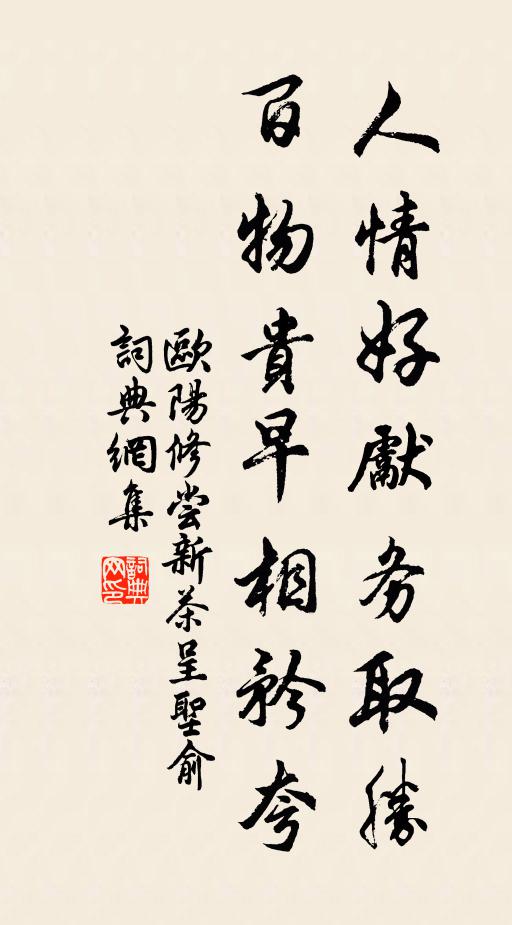 人情好獻务取勝
百物貴早相矜夸
歐陽修嘗新茶呈聖俞
詞典網集
詞典网印